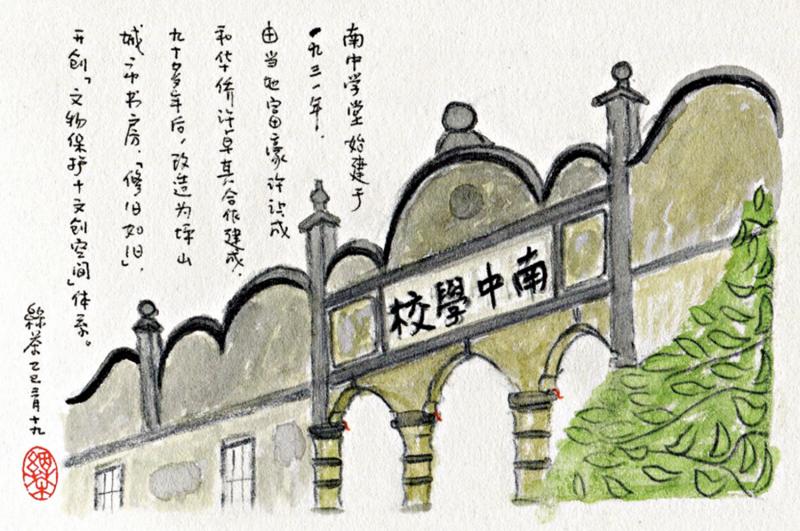 南中学堂始建于
一九三一年.
由当地富豪许让成
和华侨许卓其合作建成.
九十多年后,改造为坪山
城市书房.「修旧如旧」,
开创「文物保护+文创空间」体系。
绿茶乙巳二月十九
南中學校
绿茶